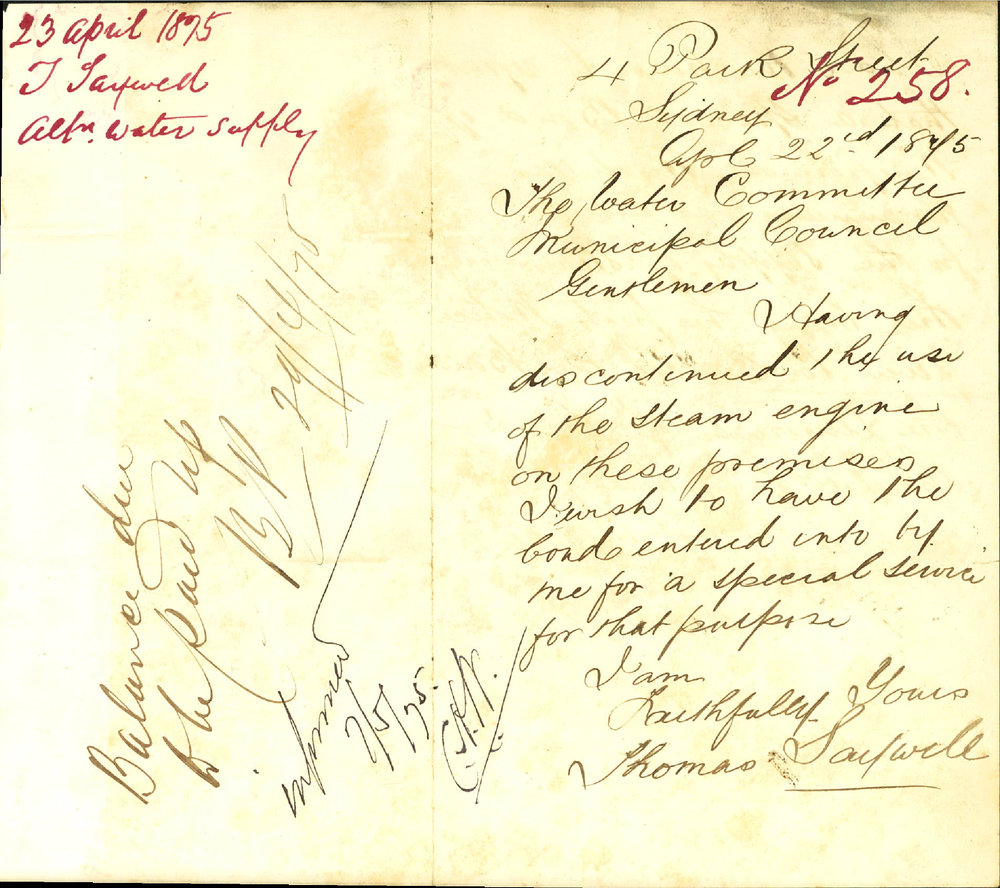 23 April 1875
T Saywell
Altn. water supply
Balance due
to be paid up
29/4/75
informed
7/5/75
No 258.
4 Park Street
Sydney
Apl 22nd 1875
The Water Committee
Municipal Council
Gentlemen
Having
discontinued the use
of the steam engine
on these premises
I wish to have the
bond entered into by
me for a special service
for that purpose
I am
Faithfully Yours
Thomas Saywell